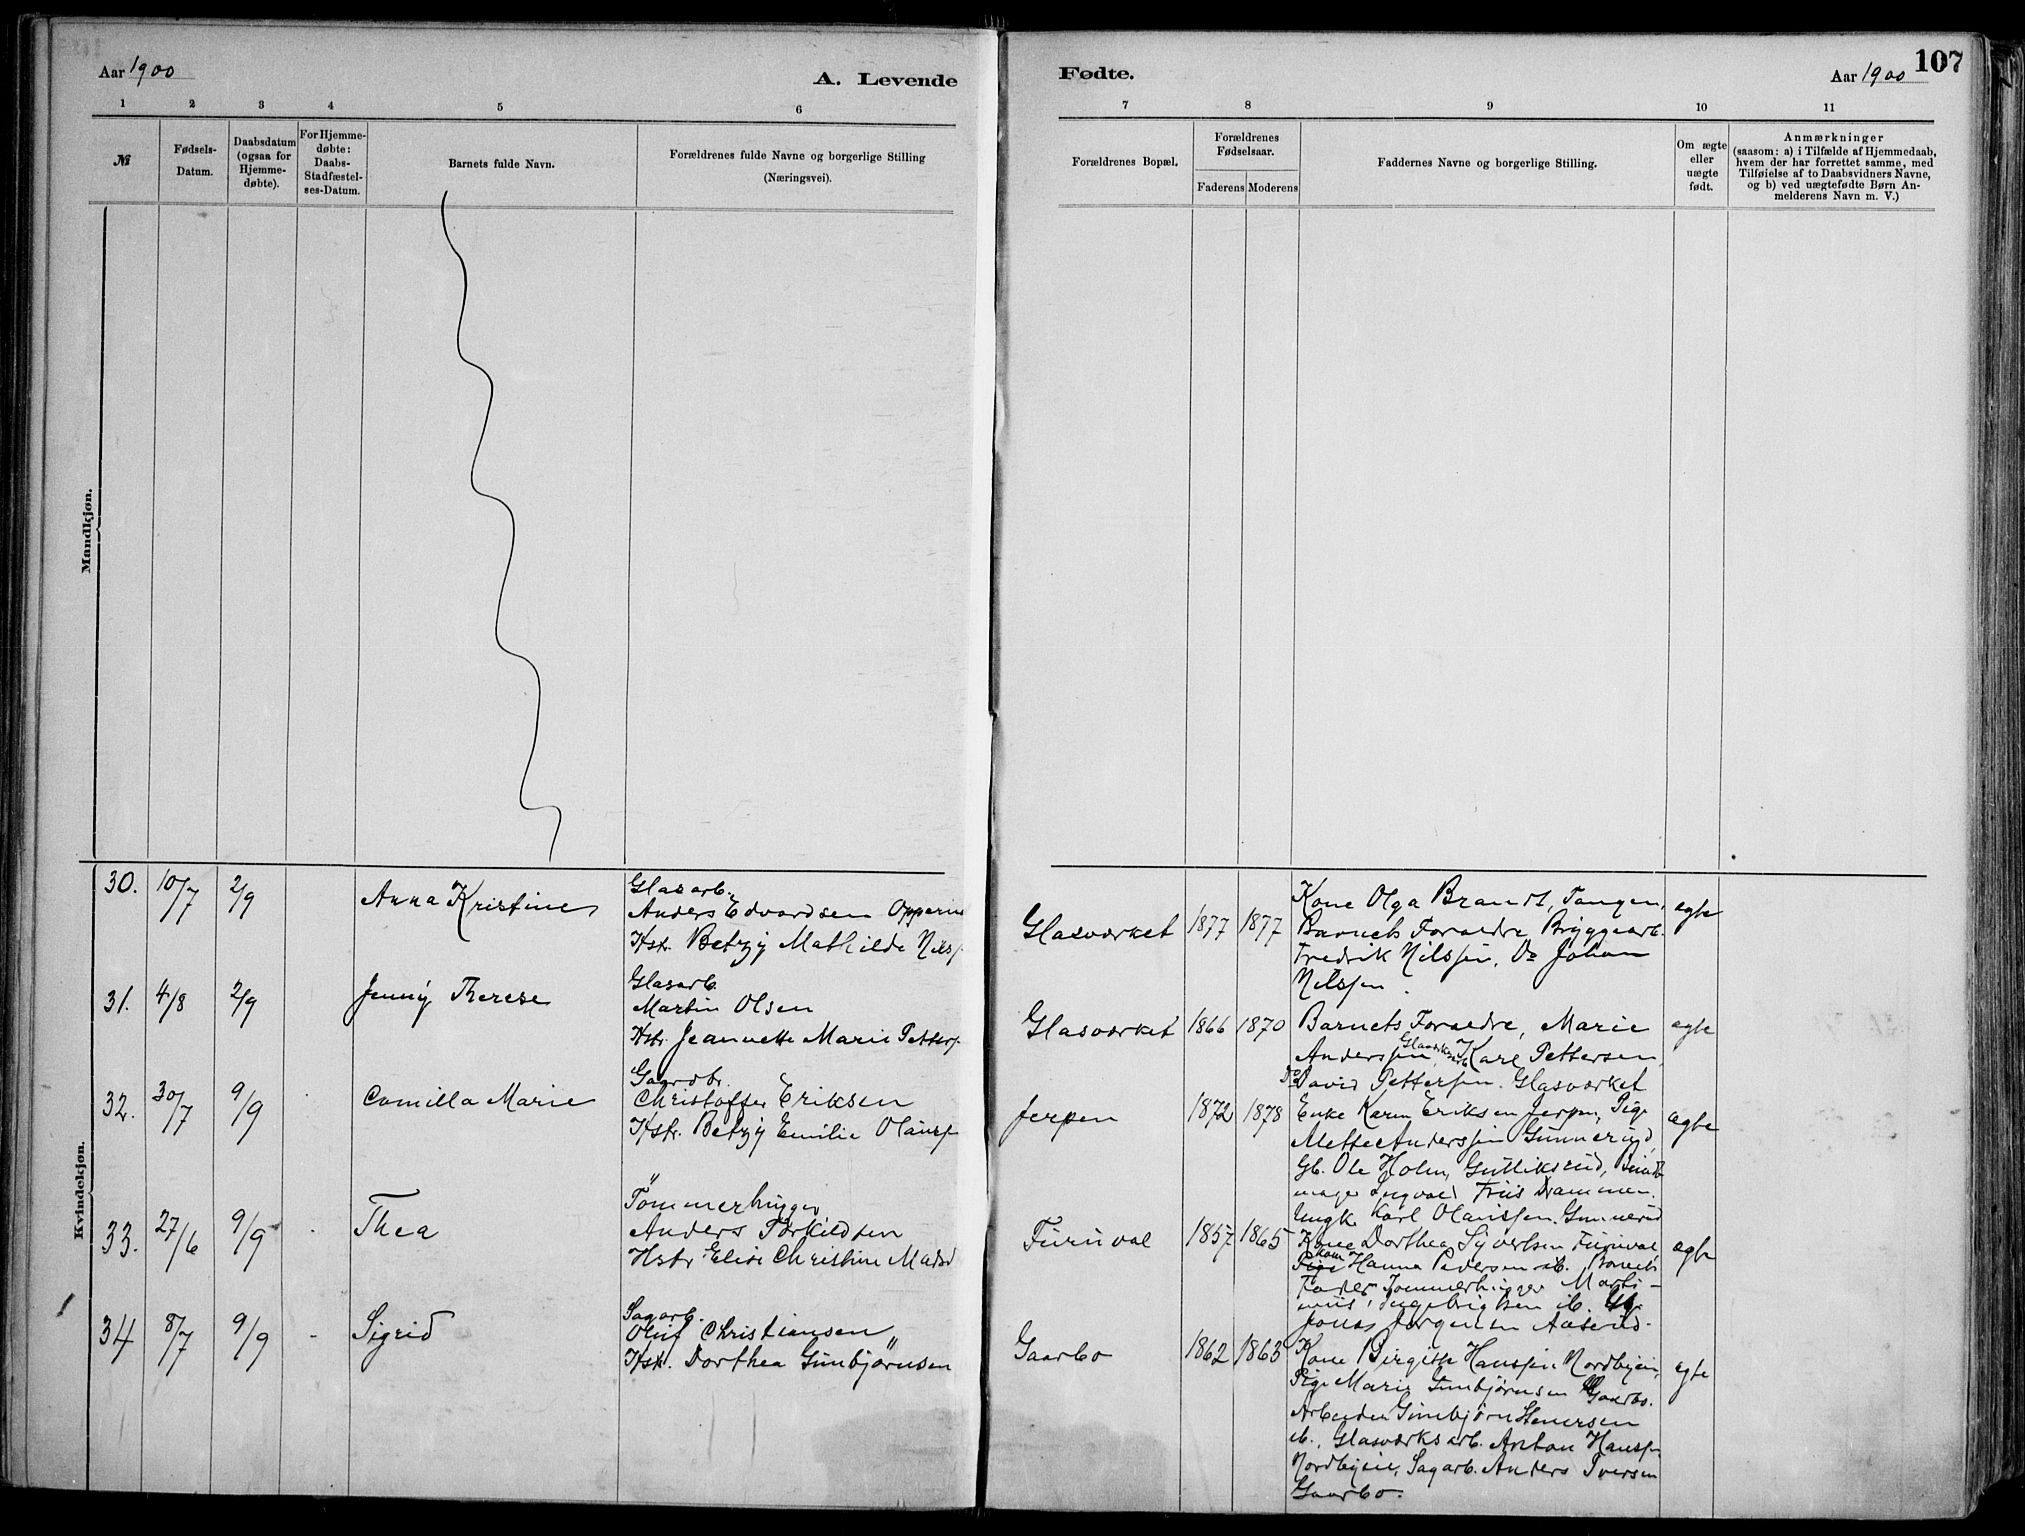 Aar 1900
A. Levende
Fødte.
Aar 1900
107
1 2 3 4 5 6 7 8 9 10 11
№
Fødsels-
Datum.
Daabsdatum
(ogsaa for
Hjemme-
døbte).
For Hjemme-
døbte:
Daabs-
Stadfæstel-
ses-Datum.
Barnets fulde Navn.
Forældrenes fulde Navne og borgerlige Stilling
(Næringsvei).
Forældrenes Bopæl.
Forældrenes
Fødselsaar.
Faderens Moderens
Faddernes Navne og borgerlige Stilling.
Om ægte
eller
uægte
født.
Anmærkninger
(saasom: a) i Tilfælde af Hjemmedaab,
hvem der har forrettet samme, med
Tilføielse af to Daabsvidners Navne,
og b) ved uægtefødte Børn An-
melderens Navn m. V.)
Mandkjøn.
Kvindekjøn.
30. 10/7 2/9 Anna Kristine
Glasarb.
Anders Edvardsen
Hstr. Betzy Mathilde Nils
Glasværket 1877 1877
Kone Olga Brandt, Tangen,
Barnets Foraedre, Bryggearb.
Fredrik Nilssen, Do Johan
Nilssen.
ægte
31. 4/8 2/9 Jenny Therese
Glasarb.
Martin Olsen
Hstr. Jeannette Marie Petters
Glasværket 1866 1870
Barnets Foraedre, Marie
Anderssen, Karl Pettersen
Do David Pettersen. Glasværket
ægte
32. 30/7 9/9 Camilla Marie
Gaardbr.
Christoffer Eriksen
Hstr. Betzy Emilie Olauss
Jerpen 1872 1878
Enke Karen Eriksen Jerpen, Pige
Mette Anderssen Gunnerud,
Gb. Ole Holm, Gulliksrud,
mager Ingvald Friis Drammen.
Ungk. Karl Olaussen Gunnerud
ægte
33. 27/6 9/9 Thea
Tömmerhugger
Anders Torkildsen
Hstr. Elise Christine Mads
Furuval 1857 1865
Kone Dorthea Syvertsen Furuval,
Kone Hanna Pedersen ib. Barnets
Fader, Tommerhugger Marti-
nius Ingebrigtsen ib. Gb.
Jonas Jörgensen Aaserud.
ægte
34 8/7 9/9 Sigrid
Sagarb.
Oluf Christiansen
Hstr. Dorthea Gunbjørnsen
Gaarbo 1862 1863
Kone Birgitte Hanssen Nordbyeie,
Pige Marie Gunbjørnsen Gaarbo.
Arbeider Gunbjørn Stenersen
ib., Glasværksarb. Anton Hanss
Nordbyeie, Sagarb. Anders Iversen
Gaarbo.
ægte